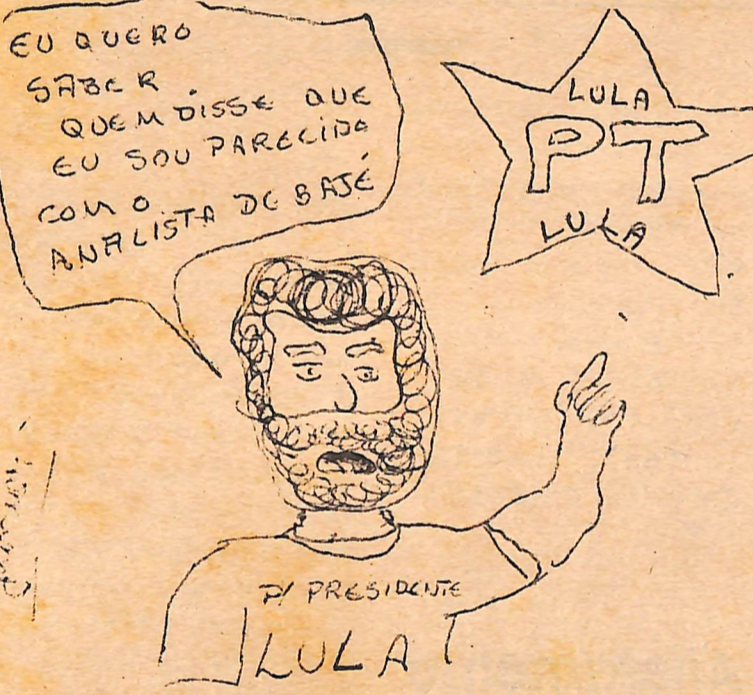 EU QUERO
SABER
QUEM DISSE QUE
EU SOU PARECIDO
COM O
ANALISTA DE BAJÉ
LULA
PT
LULA
P/ PRESIDENTE
LULA